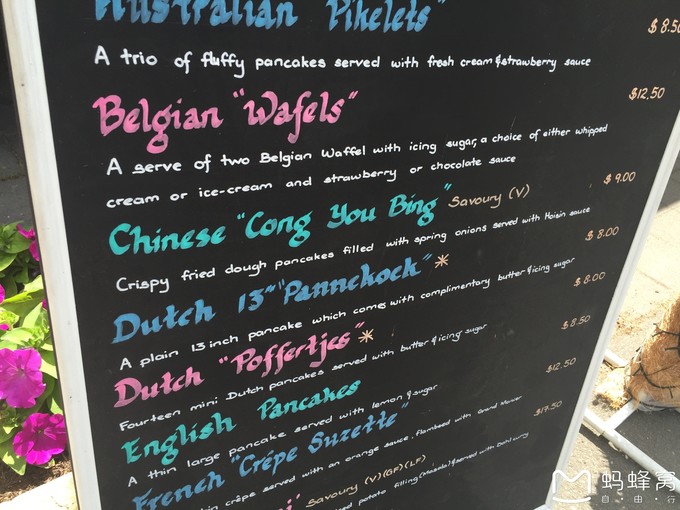 Australian Pikelets"
$8.50
A trio of fluffy pancakes served with fresh cream & strawberry sauce
Belgian "Wafels"
$12.50
A serve of two Belgian Waffel with icing sugar, a choice of either whipped
cream or ice-cream and strawberry or chocolate sauce
Chinese "Cong You Bing" Savoury (V)
$9.00
Crispy fried dough pancakes filled with spring onions served with Hoisin sauce
Dutch 13" "Pannekoek" *
$8.00
A plain 13 inch pancake which comes with complimentary butter & icing sugar
Dutch "Poffertjes" *
$8.00
Fourteen mini Dutch pancakes served with butter & icing sugar
English Pancakes
$8.50
A thin large pancake served with lemon & sugar
French "Crêpe Suzette"
$12.50
crêpe served with an orange sauce, flambeed with Grand
$17.50
Savoury (V)(GF)(LF)
potato filling (Masala) & served with
蚂蜂窝
自·由·行